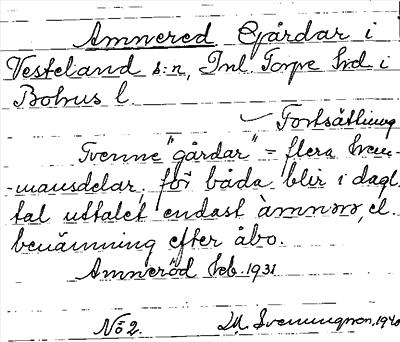 Amnered Gårdar i
Vesteland s:n, Inl. Torpe hrd i
Bohus l.
Fortsättning
Tvenne "gårdar" = flera hem-
-mansdelar, för båda blir i dagl.
tal uttalet endast àmnər, el.
benämning efter åbo.
Amneröd feb. 1931
No 2. M. Svenungson, 1940